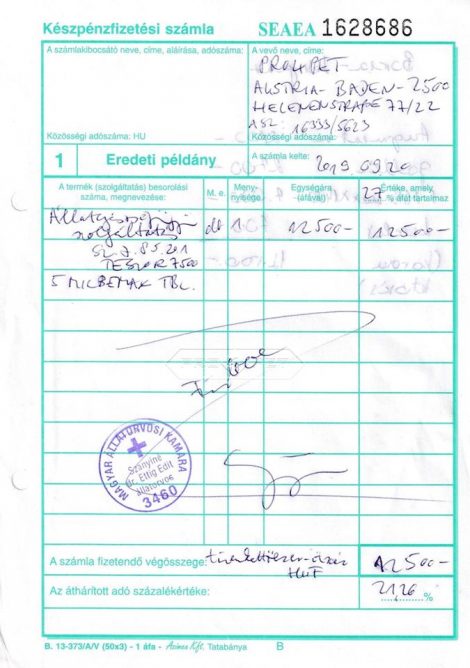 Készpénzfizetési számla SEAEA 1628686
A számlakibocsátó neve, címe, aláírása, adószáma:
A vevő neve, címe:
PROHPET
AUSTRIA - BADEN - 2500
HELENENSTRAßE 77/22
ASZ: 16333/5623
Közösségi adószáma: HU
Közösségi adószáma:
1 Eredeti példány
A számla kelte: 2019.09.20
A termék (szolgáltatás) besorolási száma, megnevezése:
M. e.
Meny-nyisége
Egységára (áfával)
Értéke, amely 27 % áfát tartalmaz
Állategészségügyi db 1 12500- 12500-
szolgáltatás
SZJ. 85.201
TESZOR 7500
5 MILBEMAX TBL.
MAGYAR ÁLLATORVOSI KAMARA
Szányiné
dr. Ettig Edit
állatorvos
3460
A számla fizetendő végösszege: tizenkettőezer-ötszáz 12500-
HUF
Az áthárított adó százalékértéke: 21,26 %
B. 13-373/A/V (50x3) - 1 áfa - Azinex Kft. Tatabánya B